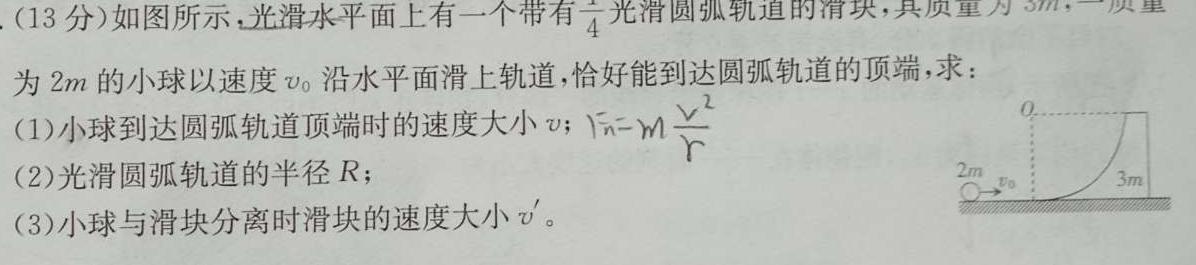 .(13分)如图所示,光滑水平面上有一个带有1/4光滑圆弧轨道的滑块,其质量为3m,一质量
为2m的小球以速度v₀沿水平面滑上轨道,恰好能到达圆弧轨道的顶端,求:
(1)小球到达圆弧轨道顶端时的速度大小v; Fn=m v²/r
(2)光滑圆弧轨道的半径R;
(3)小球与滑块分离时滑块的速度大小v′。
O
2m
v₀
3m